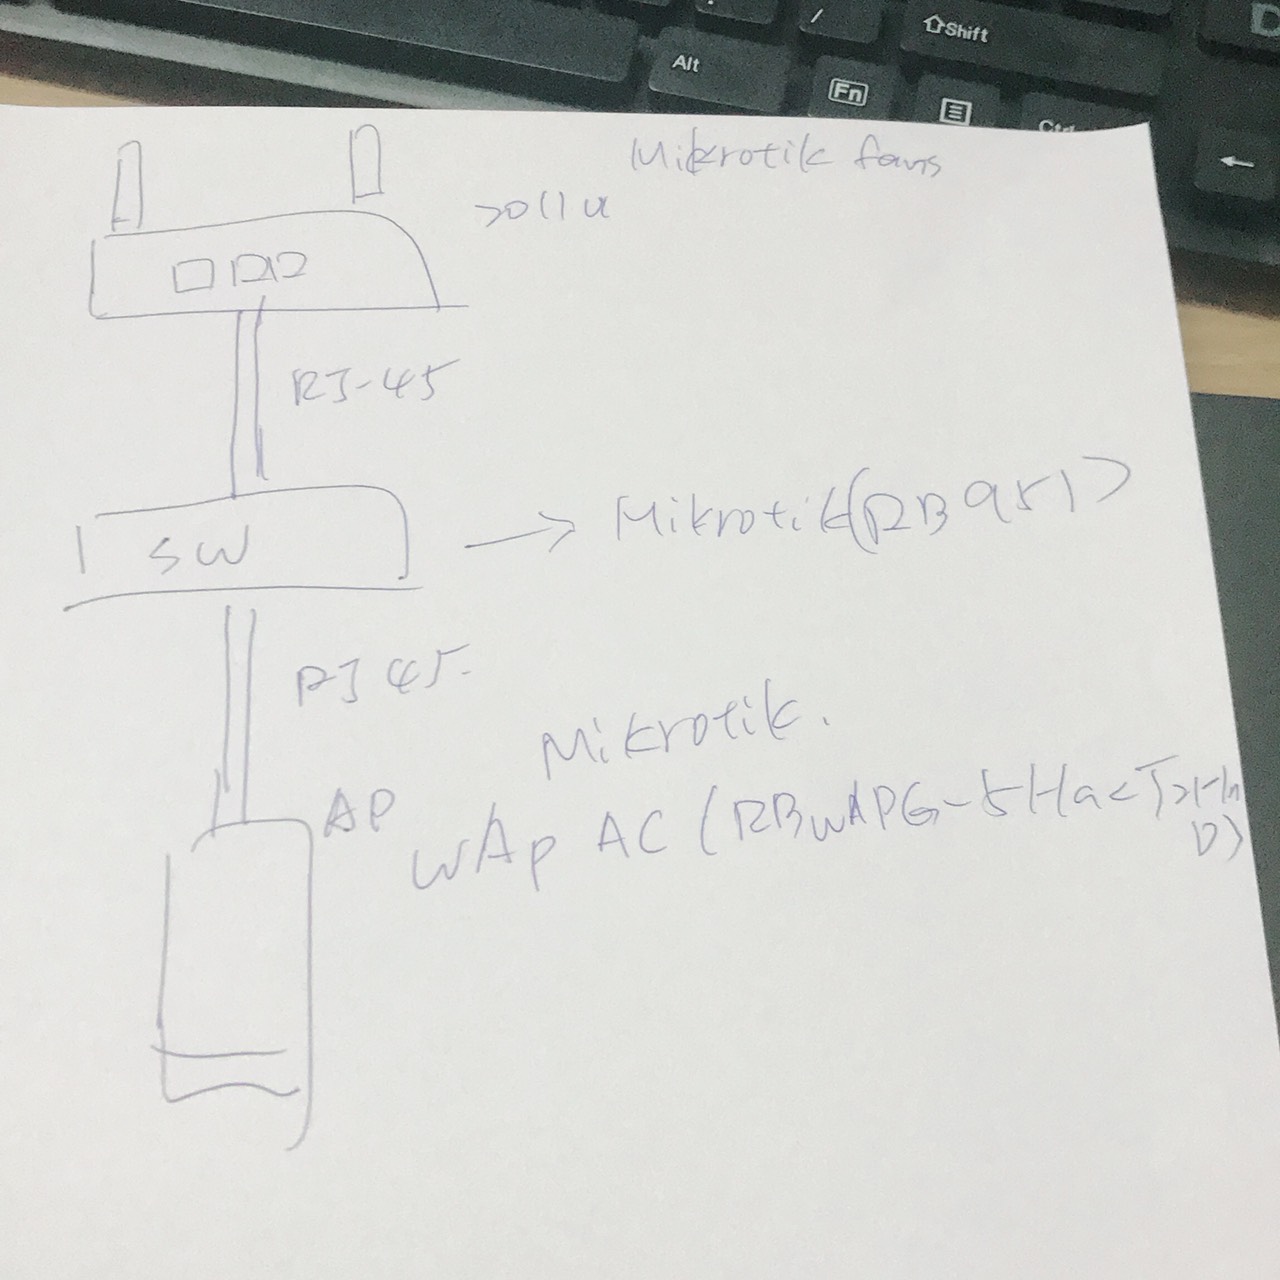 Alt
/
⇧Shift
Fn
Ctrl
←
Mikrotik fans
2011u
RJ-45
SW
→ Mikrotik(RB951)
RJ45.
AP
Mikrotik.
wAp AC (RBwAPG-5HacT2Hn
D)